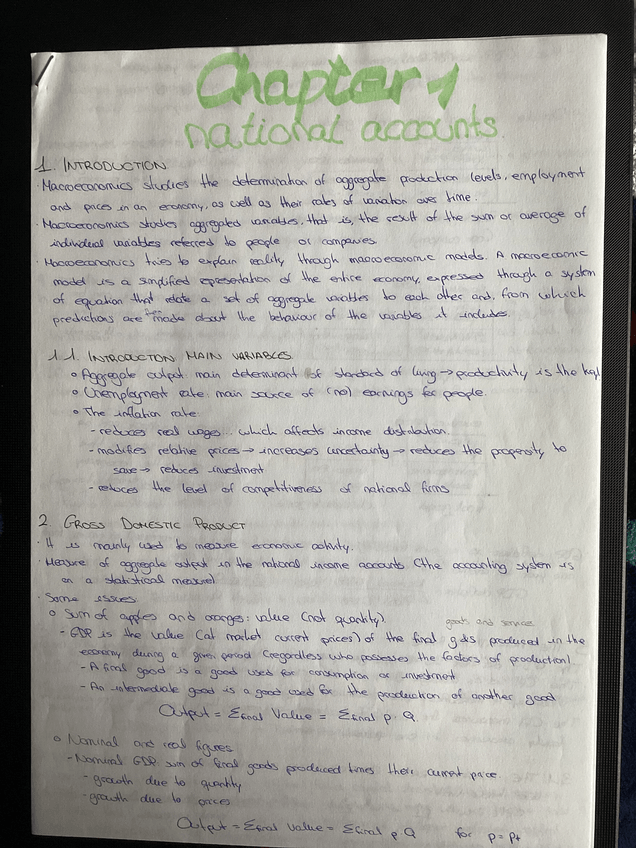 Chapter 1
national accounts.
1. INTRODUCTION
· Macroeconomics studies the determination of aggregate production levels, employment
and prices in an economy, as well as their rates of variation over time.
· Macroeconomics studies aggregated variables, that is, the result of the sum or average of
individual variables referred to people or companies.
· Macroeconomics tries to explain reality through macroeconomic models. A macroeconomic
model is a simplified representation of the entire economy, expressed through a system
of equation that relate a set of aggregate variables to each other and, from which
predictions are made about the behaviour of the variables it includes.
1.1. INTRODUCTION MAIN VARIABLES
o Aggregate output: main determinant of standard of living → productivity is the key!
o Unemployment rate: main source of (no) earnings for people.
o The inflation rate:
- reduces real wages... which affects income distribution.
- modifies relative prices → increases uncertainty → reduces the propensity to
save → reduces investment
- reduces the level of competitiveness of national firms
2 GROSS DOMESTIC PRODUCT
· It is mainly used to measure economic activity.
· Measure of aggregate output in the national income accounts (the accounting system is
on a statistical measure)
· Some issues
o Sum of apples and oranges: value (not quantity).
goods and service
- GDP is the value (at market current prices) of the final g&s, produced in the
economy during a given period (regardless who possesses the factors of production)
- A final good is a good used for consumption or investment
- An intermediate good is a good used for the production of another good
Output = Σfinal Value = Σfinal p · Q.
o Nominal and real figures
- Nominal GDP sum of final goods produced times their current price
- growth due to quantity
- growth due to prices
Output = Σfinal Value = Σfinal p Q for p = pt